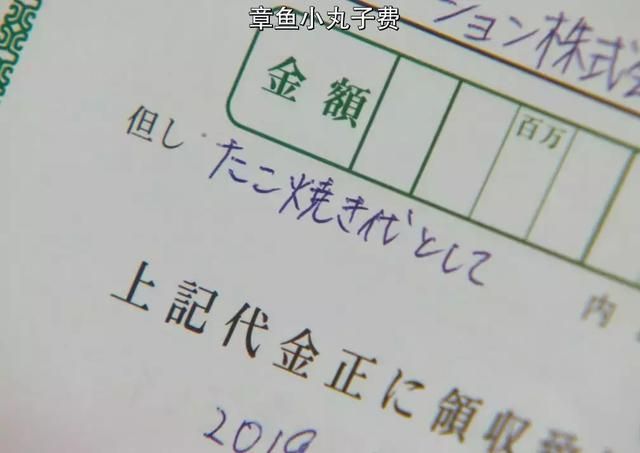 章鱼小丸子费
ション株式会
金額
百万
但し たこ焼き代として
内
上記代金正に領収致
2019